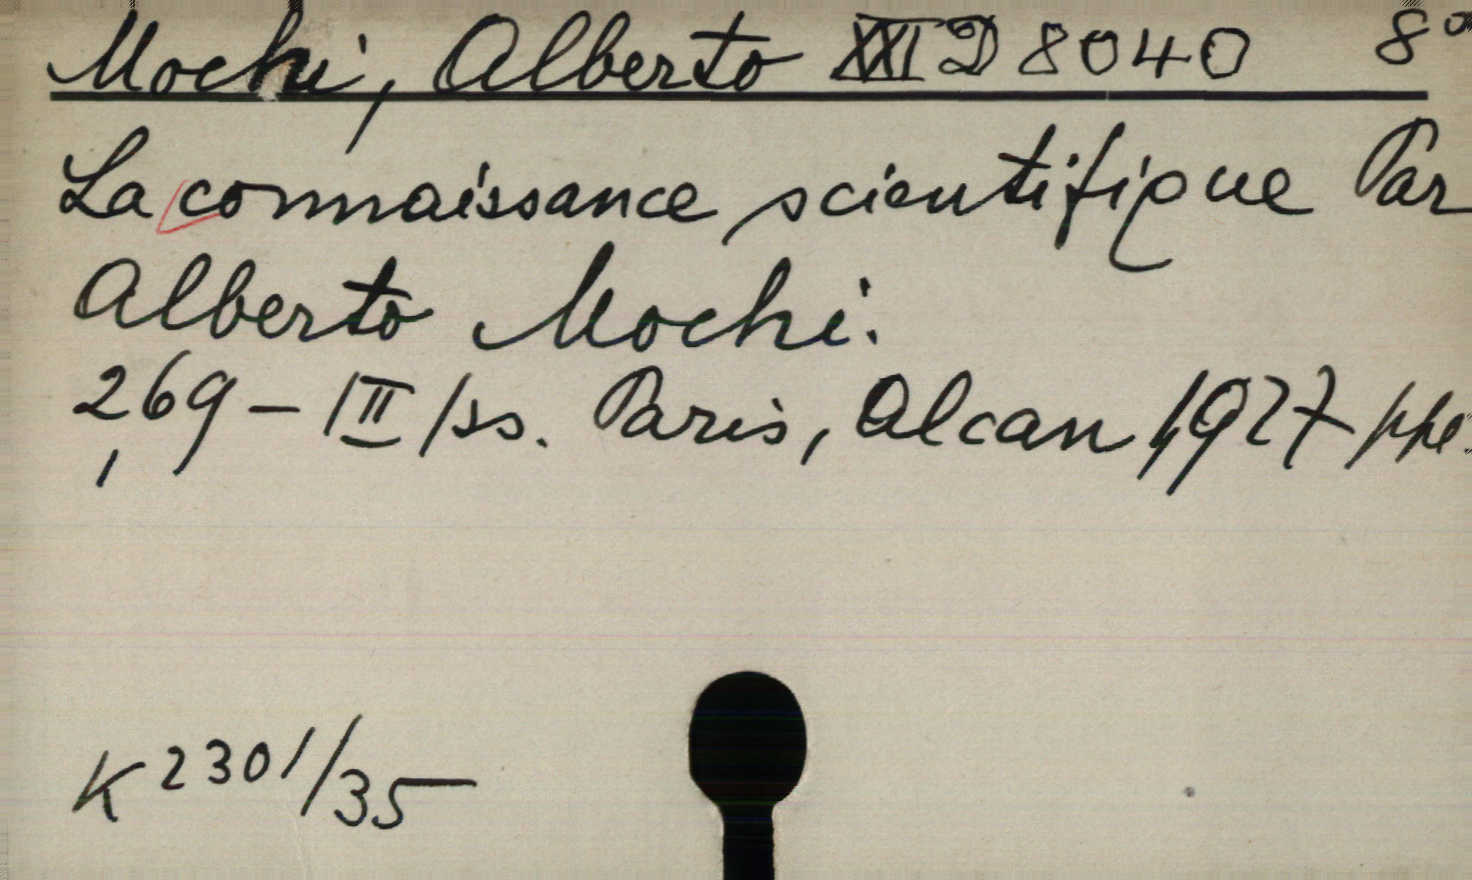 Mochi, Alberto XXI D 8040 8°
La connaissance scientifique Par
Alberto Mochi.
269 - |II| ss. Paris, Alcan, 1927 ppe.
K 2301/35